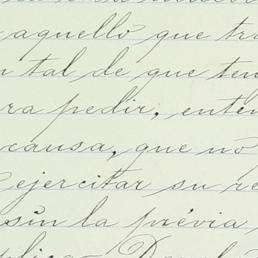 aquello que tra
n tal de que ten
ra pedir, enten
causa, que no
ejercitar su re
sin la prévia